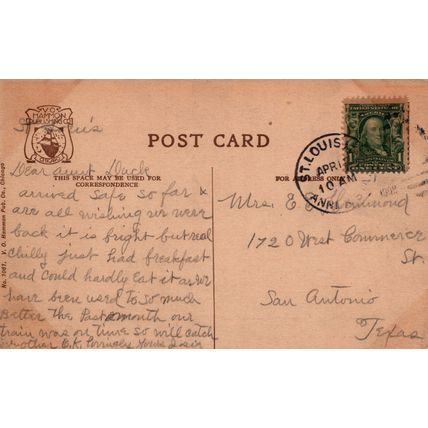 V.O. HAMMON
PUBLISHING CO.
CHICAGO
St. Louis
POST CARD
THIS SPACE MAY BE USED FOR
CORRESPONDENCE
FOR ADDRESS ONLY
No. 1067. V. O. Hammon Pub. Co., Chicago
ST. LOUIS
APR
10 AM
1
Dear aunt
arrived safe so far &
are all wishing we were
back it is bright but real
chilly just had breakfast
and could hardly eat it as we
have been used to so much
Better the Past month our
train was on time so will catch
another Yours
Mrs. E
1720 West Commerce
St.
San Antonio
Texas